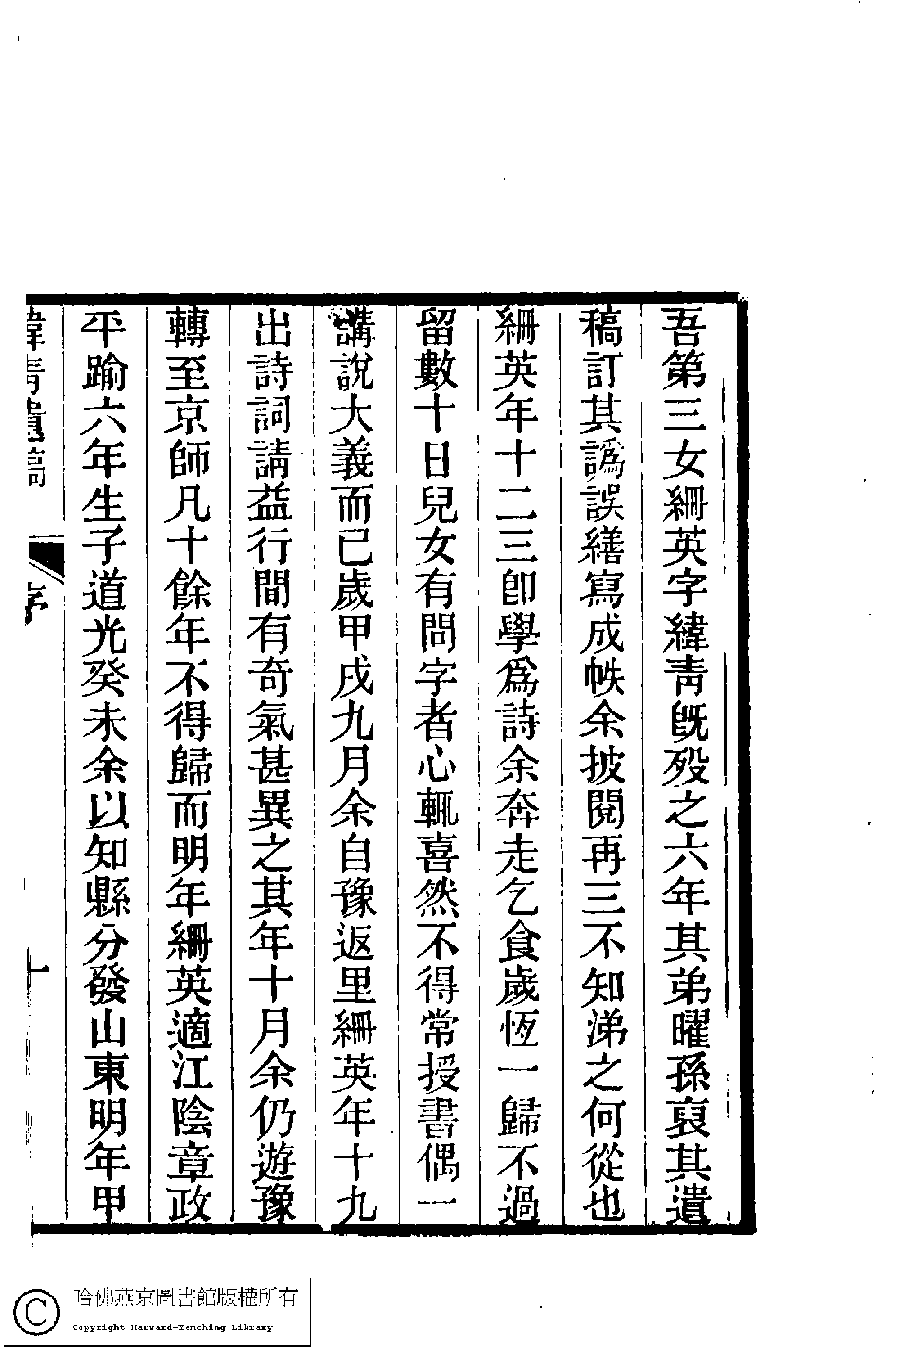 吾第三女綳英字緯靑旣歿之六年其弟曜孫裒其遺
稿訂其譌誤繕寫成帙余披閱再三不知涕之何從也
綳英年十二三卽學爲詩余奔走乞食歲恆一歸不過
留數十日兒女有問字者心輒喜然不得常授書偶一
講說大義而已歲甲戌九月余自豫返里綳英年十九
出詩詞請益行間有奇氣甚異之其年十月余仍遊豫
轉至京師凡十餘年不得歸而明年綳英適江陰章政
平踰六年生子道光癸未余以知縣分發山東明年甲
緯靑遺稿
序
一
哈佛燕京圖書館版權所有
Copyright Harvard-Yenching Library